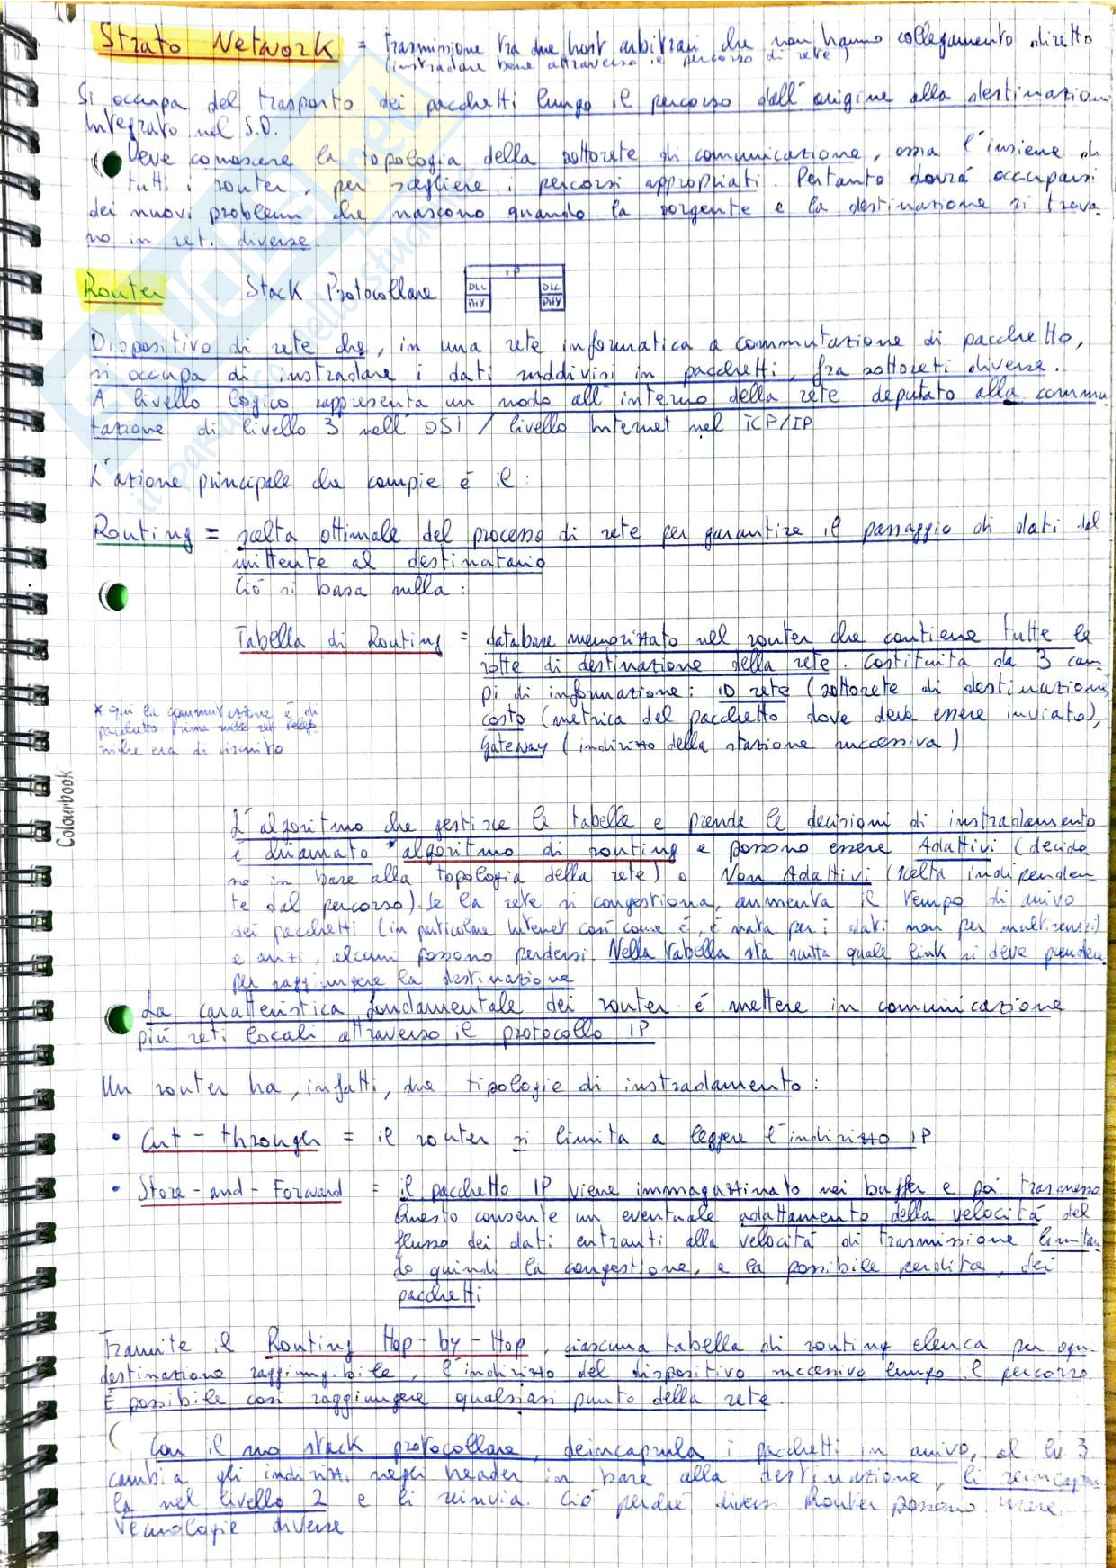 Strato Network = trasmissione tra due host arbitrari che non hanno collegamento diretto
(instradare bene attraverso il percorso di rete)
Si occupa del trasporto dei pacchetti lungo il percorso dall'origine alla destinazione
Integrato nel S.O.
Deve conoscere la topologia della sottorete di comunicazione, ossia l'insieme di
tutti i router, per scegliere i percorsi appropriati. Pertanto dovrà occuparsi
dei nuovi problemi che nascono quando la sorgente e la destinazione si trova-
no in reti diverse.
Router Stack Protocollare IP
DLL DLL
PHY PHY
Dispositivo di rete che, in una rete informatica a commutazione di pacchetto,
si occupa di instradare i dati suddivisi in pacchetti, fra sottoreti diverse.
A livello logico rappresenta un nodo all'interno della rete deputato alla commu
tazione di livello 3 nell'OSI / livello Internet nel TCP/IP
L'azione principale che compie è il:
Routing = scelta ottimale del processo di rete per garantire il passaggio di dati dal
mittente al destinatario
Ciò si basa sulla:
Tabella di Routing = database memorizzato nel router che contiene tutte le
rotte di destinazione della rete. Costituita da 3 cam-
pi di informazione: ID rete (sottorete di destinazione)
costo (metrica del pacchetto dove deve essere inviato),
Gateway (indirizzo della stazione successiva)
* qui la commutazione è di
pacchetto prima
era di circuito
Colourbook
L'algoritmo che gestisce la tabella e prende le decisioni di instradamento
è chiamato algoritmo di routing e possono essere Adattivi (decido
no in base alla topologia della rete) o Non Adattivi (scelta indipenden
te dal percorso). Se la rete si congestiona, aumenta il tempo di arrivo
dei pacchetti (in particolare Internet così come è, è nata per i dati non per multiservizi)
e anzi, alcuni possono perdersi. Nella tabella sta scritta quale link si deve prendere
per raggiungere la destinazione
La caratteristica fondamentale dei router è mettere in comunicazione
più reti locali attraverso il protocollo IP
Un router ha, infatti, due tipologie di instradamento:
• Cut-through = il router si limita a leggere l'indirizzo IP
• Store-and-Forward = il pacchetto IP viene immagazzinato nei buffer e poi trasmesso
Questo consente un eventuale adattamento della velocità del
flusso dei dati entranti alla velocità di trasmissione limitan
do quindi la congestione, e la possibile perdita, dei
pacchetti
Tramite il Routing Hop-by-Hop, ciascuna tabella di routing elenca per ogni
destinazione raggiungibile, l'indirizzo del dispositivo successivo lungo il percorso.
È possibile così raggiungere qualsiasi punto della rete.
Con il suo stack protocollare, deincapsula i pacchetti in arrivo, al lv 3
cambia gli indirizzi negli header in base alla destinazione, li reincapsu-
la nel livello 2 e li reinvia. Ciò perché diversi Router possono usare
tecnologie diverse